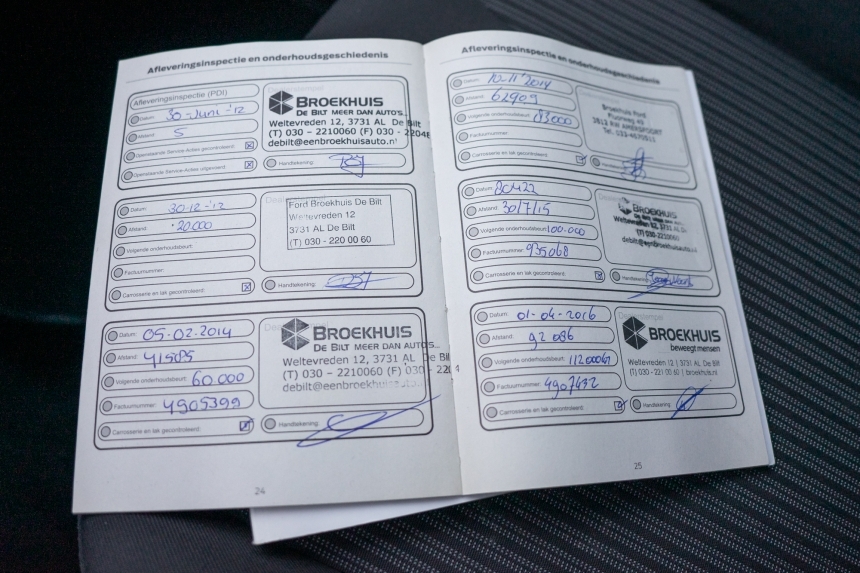 Afleveringsinspectie en onderhoudsgeschiedenis
Afleveringsinspectie (PDI)
Datum: 30-Juni-'12
Afstand: 5
Openstaande Service-Acties gecontroleerd:
Openstaande Service-Acties uitgevoerd:
BROEKHUIS
DE BILT MEER DAN AUTO'S...
Weltevreden 12, 3731 AL De Bilt
(T) 030 - 2210060 (F) 030 - 2204
debilt@eenbroekhuisauto.nl
Handtekening:
Datum: 30-12-'12
Afstand: 20.000
Volgende onderhoudsbeurt:
Factuurnummer:
Carrosserie en lak gecontroleerd:
Ford Broekhuis De Bilt
Weltevreden 12
3731 AL De Bilt
(T) 030 - 220 00 60
Handtekening:
Datum: 05-02-2014
Afstand: 41585
Volgende onderhoudsbeurt: 60.000
Factuurnummer: 4905399
Carrosserie en lak gecontroleerd:
BROEKHUIS
DE BILT MEER DAN AUTO'S...
Weltevreden 12, 3731 AL De Bilt
(T) 030 - 2210060 (F) 030 - 2204
debilt@eenbroekhuisauto.nl
Handtekening:
24
Afleveringsinspectie en onderhoudsgeschiedenis
Datum: 10-11-2014
Afstand: 62909
Volgende onderhoudsbeurt: 83000
Factuurnummer:
Carrosserie en lak gecontroleerd:
Broekhuis Ford
3812 RW AMERSFOORT
Handtekening:
Datum:
Afstand: 30/7/15
Volgende onderhoudsbeurt: 100.000
Factuurnummer: 935068
Carrosserie en lak gecontroleerd:
BROEKHUIS
DE BILT MEER DAN AUTO'S...
Weltevreden 12, 3731 AL De Bilt
debilt@eenbroekhuisauto.nl
Handtekening:
Datum: 01-04-2016
Afstand: 92 086
Volgende onderhoudsbeurt:
Factuurnummer: 4907432
Carrosserie en lak gecontroleerd:
BROEKHUIS
beweegt mensen
Weltevreden 12 | 3731 AL De Bilt
(T) 030 - 221 00 60 | broekhuis.nl
Handtekening:
25